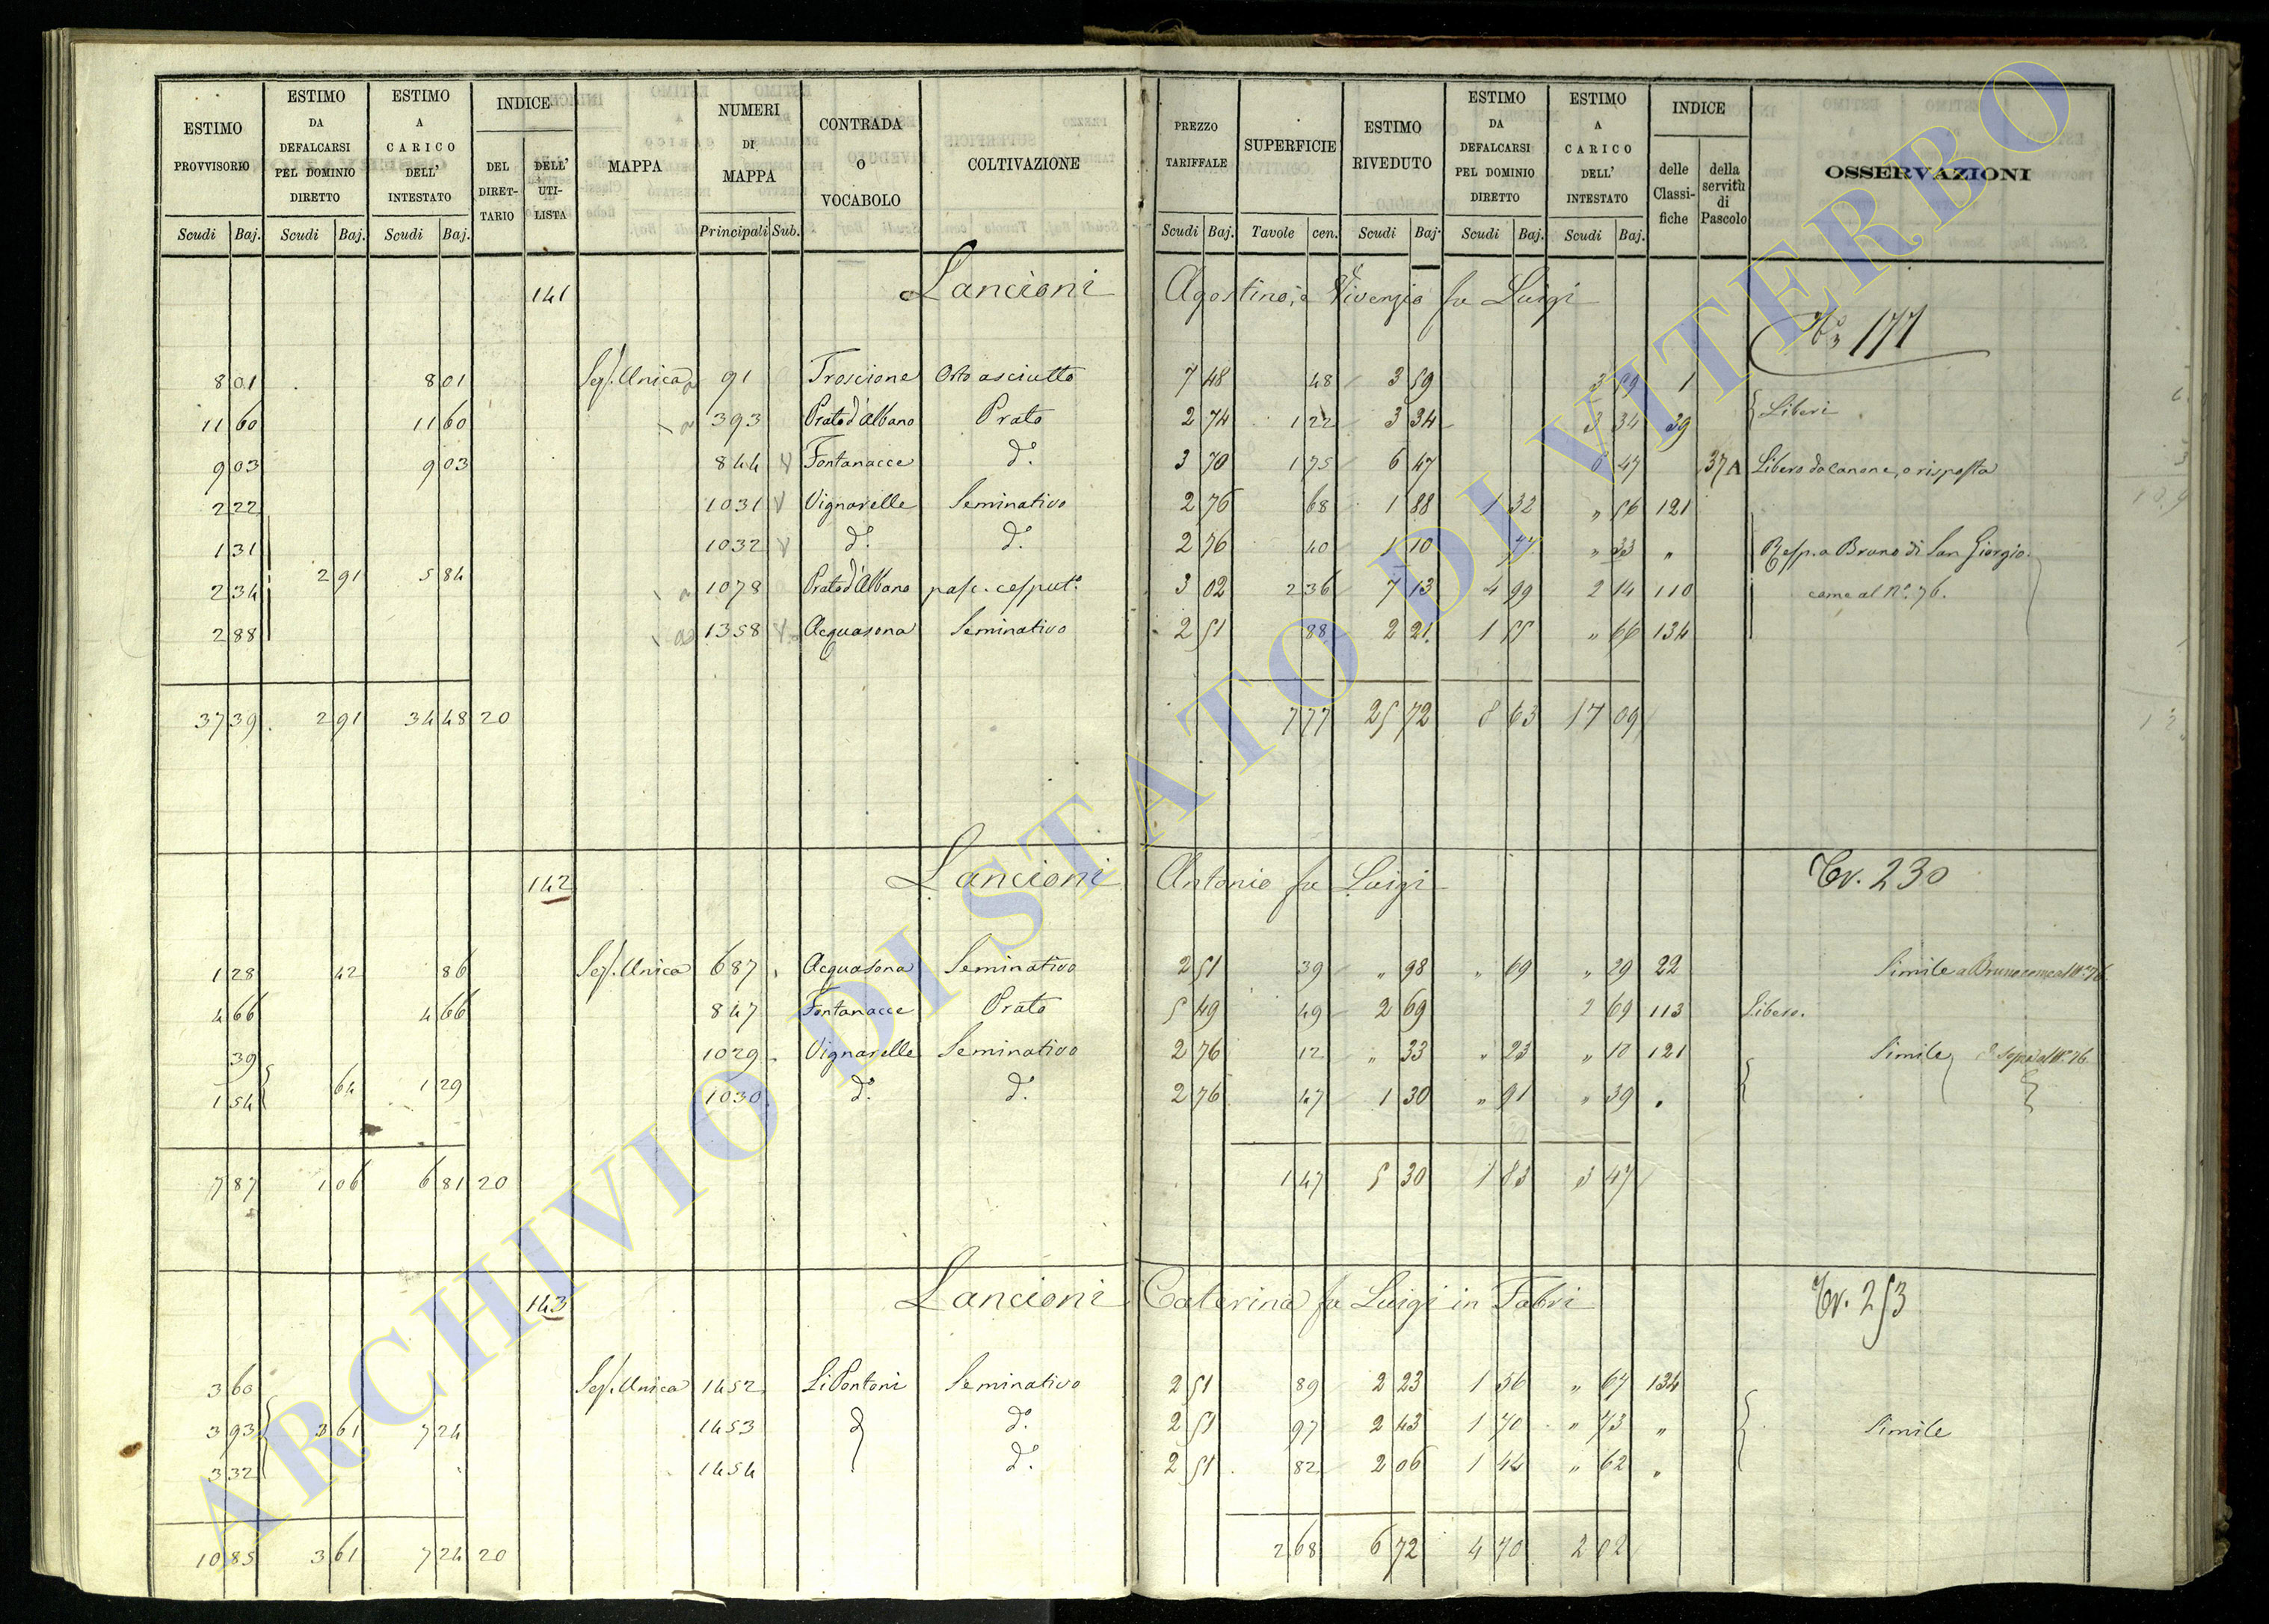 ESTIMO PROVVISORIO | ESTIMO DA DEFALCARSI PEL DOMINIO DIRETTO | ESTIMO A CARICO DELL' INTESTATO | INDICE DEL DIRETTARIO | DELL' UTILISTA | MAPPA | NUMERI DI MAPPA | CONTRADA O VOCABOLO | COLTIVAZIONE | PREZZO TARIFFALE | SUPERFICIE | ESTIMO RIVEDUTO | ESTIMO DA DEFALCARSI PEL DOMINIO DIRETTO | ESTIMO A CARICO DELL' INTESTATO | INDICE delle Classifiche | della servitù di Pascolo | OSSERVAZIONI
Scudi Baj. | Scudi Baj. | Scudi Baj. | Principali Sub. | Scudi Baj. | Tavole cen. | Scudi Baj. | Scudi Baj. | Scudi Baj.
141 Lancioni Agostino, e Vivenzio fu Luigi
177
8 01 | 8 01 | Sez. Unica | 91 | Troscione | Orto asciutto | 7 48 | 48 | 3 59 | 3 59 | 1
11 60 | 11 60 | 393 | Prato d'Albano | Prato | 2 74 | 1 22 | 3 34 | 3 34 | 39 | Liberi
9 03 | 9 03 | 844 | Fontanacce | d.° | 3 70 | 1 75 | 6 47 | 6 47 | 37 A | Libero da canone, o risposta
2 22 | 1031 | Vignarelle | Seminativo | 2 76 | 68 | 1 88 | 1 32 | " 56 | 121
1 31 | 1032 | d.° | d.° | 2 76 | 40 | 1 10 | 77 | " 33 | " | Resp. a Bruno di San Giorgio
2 34 | 2 91 | 5 84 | 1078 | Prato d'Albano | pasc. cesput.° | 3 02 | 2 36 | 7 13 | 4 99 | 2 14 | 110 | come al N.° 76.
2 88 | 1358 | Acquasona | Seminativo | 2 51 | 88 | 2 21 | 1 55 | " 66 | 134
37 39 | 2 91 | 34 48 | 20 | 7 77 | 25 72 | 8 63 | 17 09
142 Lancioni Antonio fu Luigi
230
1 28 | 42 | 86 | Sez. Unica | 687 | Acquasona | Seminativo | 2 51 | 39 | " 98 | " 69 | " 29 | 22 | Simile a Bruno come al N.° 76
4 66 | 4 66 | 847 | Fontanacce | Prato | 5 49 | 49 | 2 69 | 2 69 | 113 | Libero.
39 | 1029 | Vignarelle | Seminativo | 2 76 | 12 | " 33 | " 23 | " 10 | 121 | Simile
1 54 | 64 | 1 29 | 1030 | d.° | d.° | 2 76 | 47 | 1 30 | " 91 | " 39 | "
7 87 | 1 06 | 6 81 | 20 | 1 47 | 5 30 | 1 83 | 3 47
143 Lancioni Caterina fu Luigi in Fabri
253
3 60 | Sez. Unica | 1452 | Li Pontoni | Seminativo | 2 51 | 89 | 2 23 | 1 56 | " 67 | 134
3 93 | 3 61 | 7 24 | 1453 | d.° | 2 51 | 97 | 2 43 | 1 70 | " 73 | " | Simile
3 32 | 1454 | d.° | 2 51 | 82 | 2 06 | 1 44 | " 62 | "
10 85 | 3 61 | 7 24 | 20 | 2 68 | 6 72 | 4 70 | 2 02
ARCHIVIO DI STATO DI VITERBO